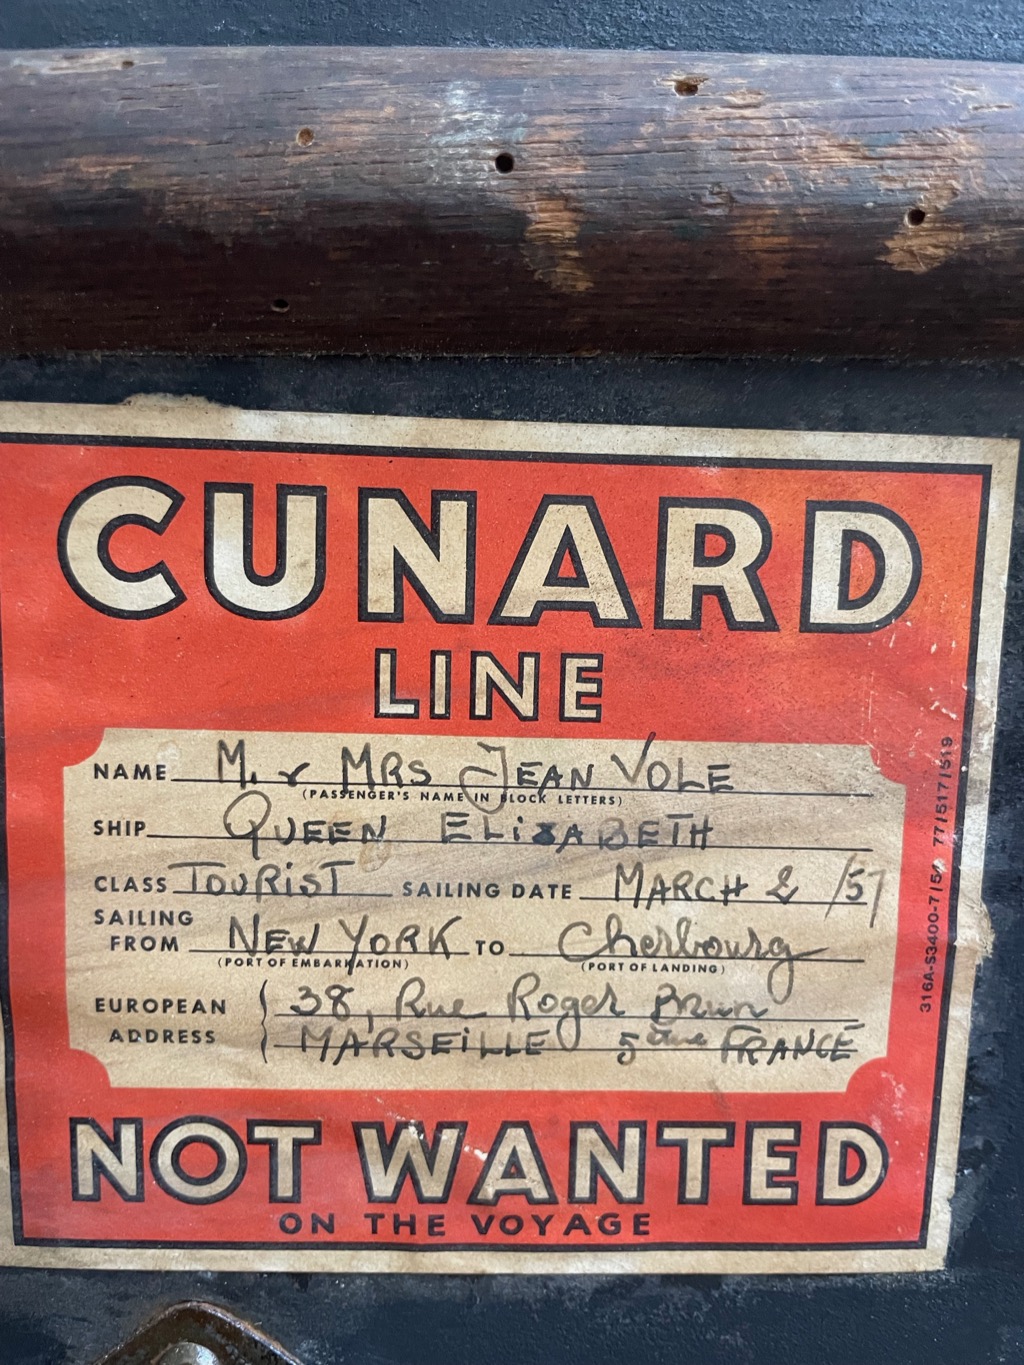 CUNARD
LINE
NAME M. & MRS JEAN VOLE
(PASSENGER'S NAME IN BLOCK LETTERS)
SHIP QUEEN ELIZABETH
CLASS TOURIST SAILING DATE MARCH 2 /57
SAILING
FROM NEW YORK TO Cherbourg
(PORT OF EMBARKATION) (PORT OF LANDING)
EUROPEAN 38, Rue Roger Brun
ADDRESS MARSEILLE 5ème FRANCE
NOT WANTED
ON THE VOYAGE